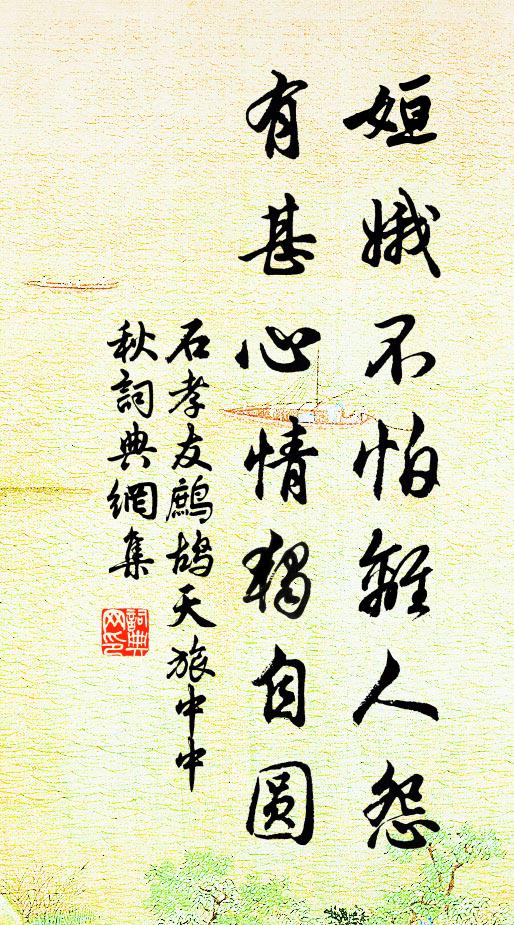 姮娥不怕離人怨
有甚心情獨自圓
石孝友鷓鴣天旅中中
秋詞典網集
詞典
網印